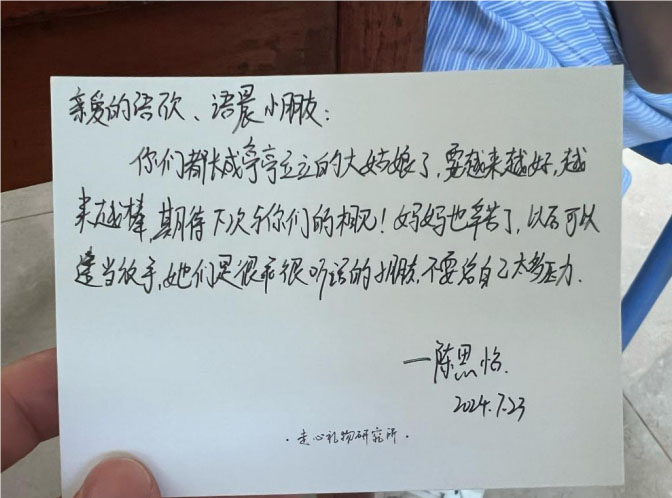 亲爱的语欣、语晨小朋友：
你们都长成亭亭玉立的大姑娘了，要越来越好，越
来越棒，期待下次与你们的相见！妈妈也辛苦了，以后可以
适当放手，她们是很乖很听话的小朋友，不要给自己太多压力.
—陈思怡.
2024.7.23
·走心礼物研究所·